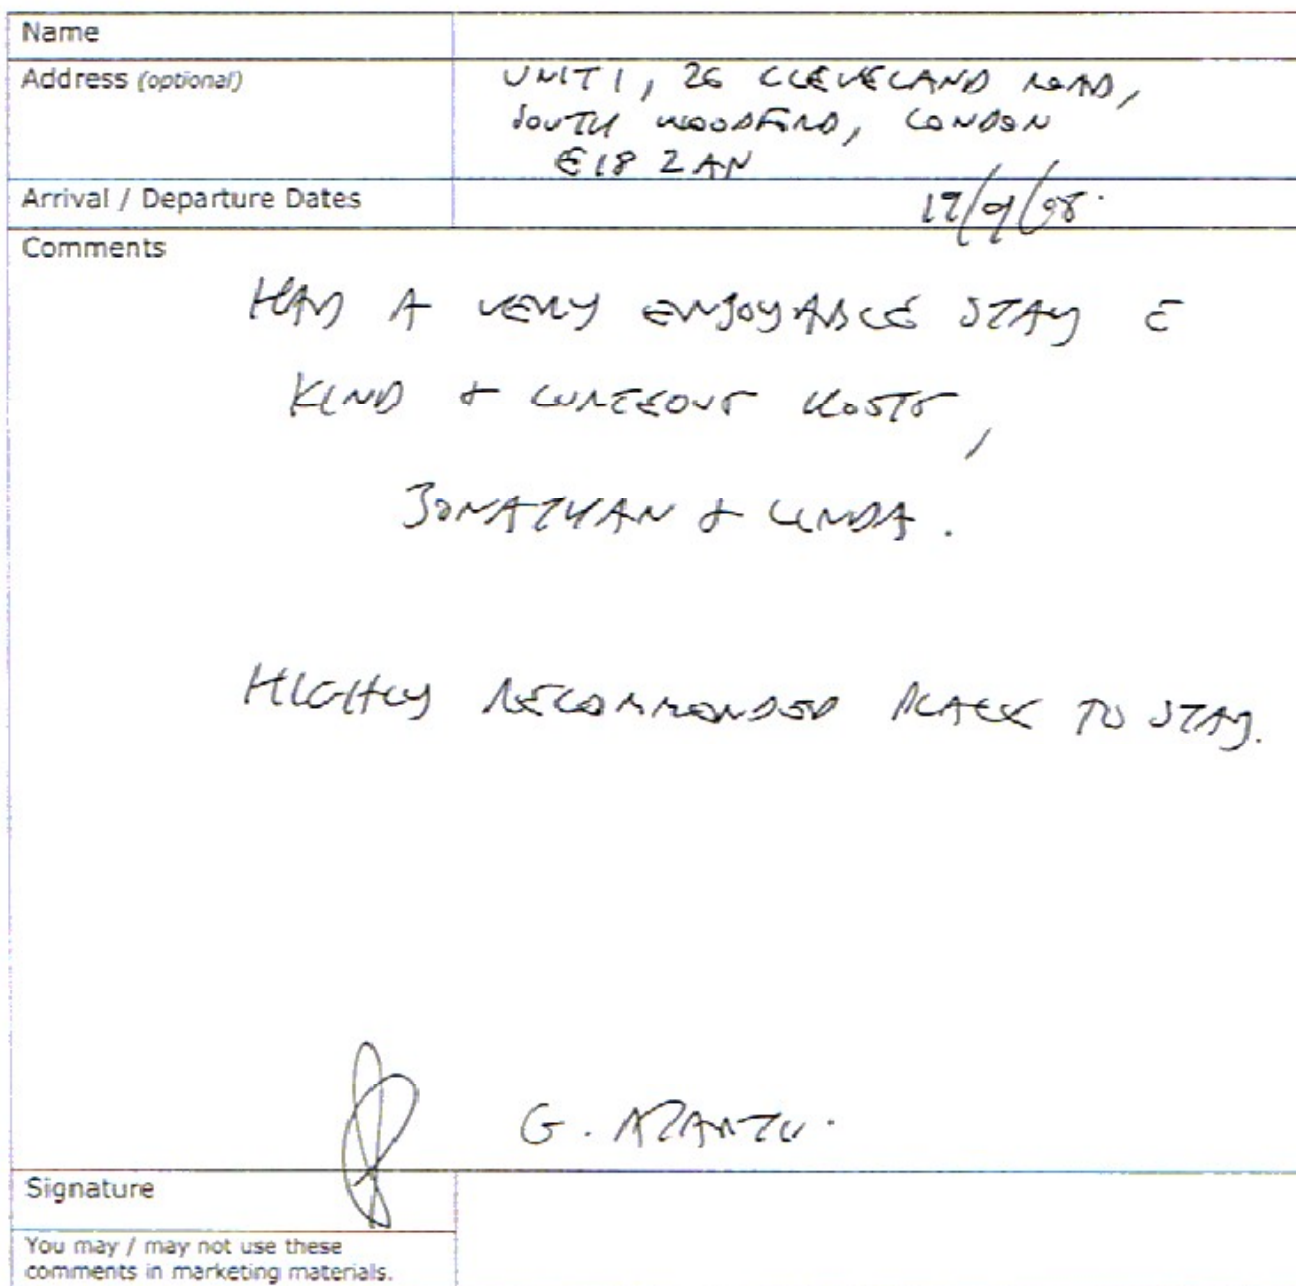 Name
Address (optional)
UNIT 1, 26 CLEVELAND ROAD,
SOUTH WOODFORD, LONDON
E18 2AN
Arrival / Departure Dates
/9/08.
Comments
HAD A VERY ENJOYABLE STAY C
KIND & CURTEOUS HOSTS,
JONATHAN & LINDA.
HIGHLY RECOMMENDED PLACE TO STAY.
G.
Signature
You may / may not use these
comments in marketing materials.